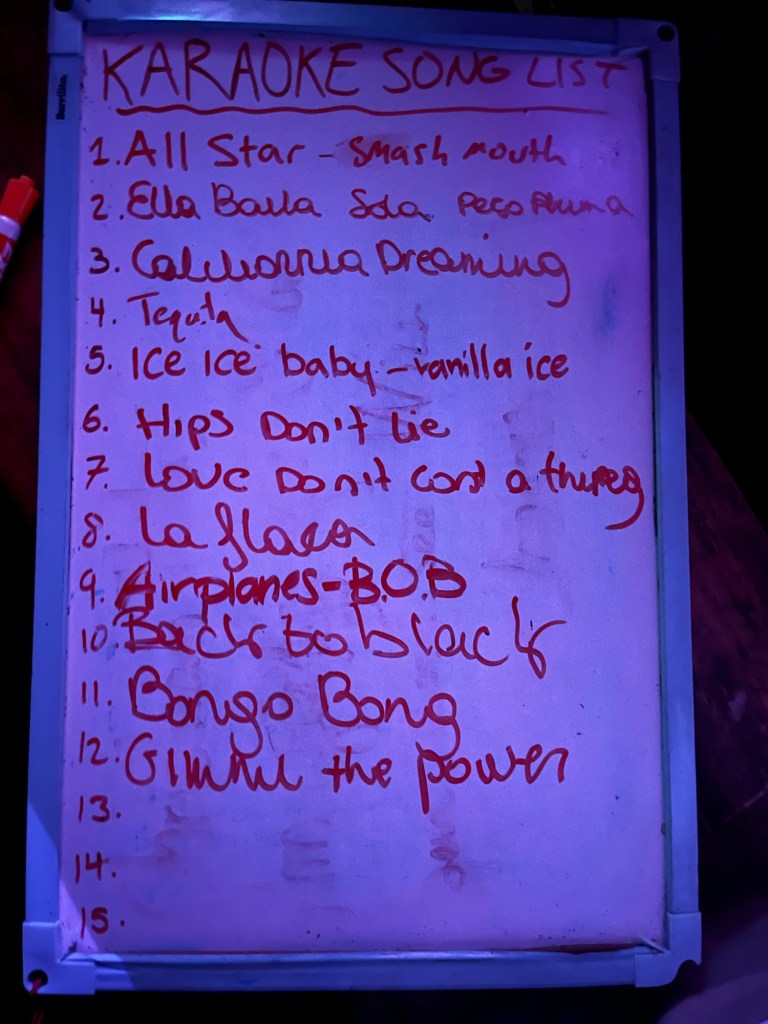 KARAOKE SONG LIST
1. All Star - Smash mouth
2. Ella Baila Sola Peso Pluma
3. California Dreaming
4. Tequila
5. ICE ICE baby - vanilla ice
6. Hips Don't Lie
7. Love Don't cost a thing
8. La flaca
9. Airplanes-B.O.B
10. Back to black
11. Bongo Bong
12. Gimme the power
13.
14.
15.